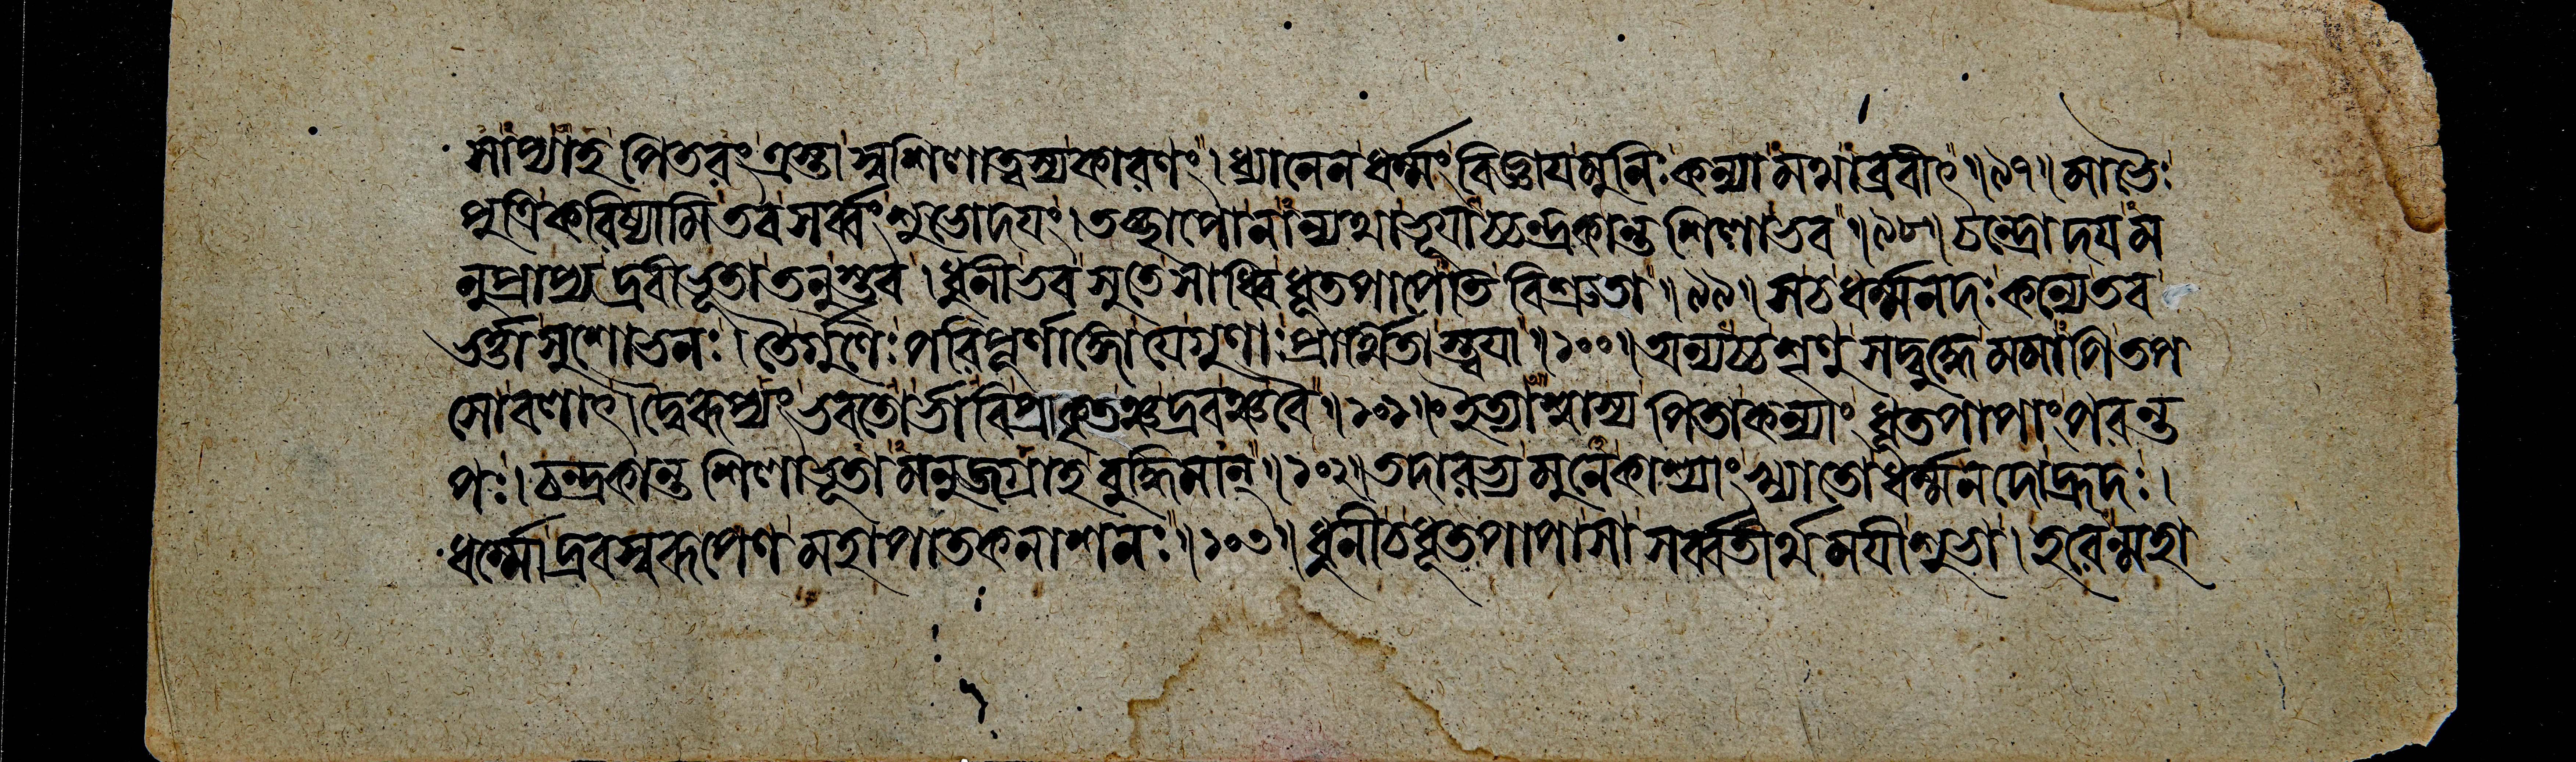 সাপ্যাহ পিতরং ত্রস্তা স্বশিলাত্বস্য কারণং । ধ্যানেন ধর্ম্মং বিজ্ঞায মুনিঃ কন্যামথাব্রবীৎ ॥ ৯৭ ॥ মা ভৈঃ
পুত্রি করিষ্যামি তব সর্ব্বং শুভোদযং । তচ্ছাপো নান্যথা ভূযাচ্চন্দ্রকান্ত শিলা ভব ॥ ৯৮ ॥ চন্দ্রোদযম
নুপ্রাপ্য দ্রবীভূতা তনুস্তব । ধুনী ভব সুতে সাধ্বি ধূতপাপেতি বিশ্রুতা ॥ ৯৯ ॥ স চ ধর্ম্মনদঃ কন্যে তব
ভর্ত্তা সুশোভনঃ । তৈর্গুণৈঃ পরিপূর্ণাঙ্গো যে গুণাঃ প্রার্থিতাস্ত্বযা ॥ ১০০ ॥ অন্যচ্চ শৃণু সদ্বুদ্ধে মমাপি তপ
সো বলাৎ । দ্বৈরূপ্যং ভবতোর্ভাবি প্রাকৃতঞ্চ দ্রবঞ্চ বৈ ॥ ১০১ ॥ ইত্যাশ্বাস্য পিতা কন্যাং ধূতপাপাং পরন্ত
পঃ । চন্দ্রকান্ত শিলাভূতামনুজগ্রাহ বুদ্ধিমান্ ॥ ১০২ ॥ তদারভ্য মুনে কাশ্যাং খ্যাতো ধর্ম্মনদো হ্রদঃ ।
ধর্ম্মো দ্রবস্বরূপেণ মহাপাতকনাশনঃ ॥ ১০৩ ॥ ধুনী চ ধূতপাপা সা সর্ব্বতীর্থমযী শুভা । হরেন্মহা